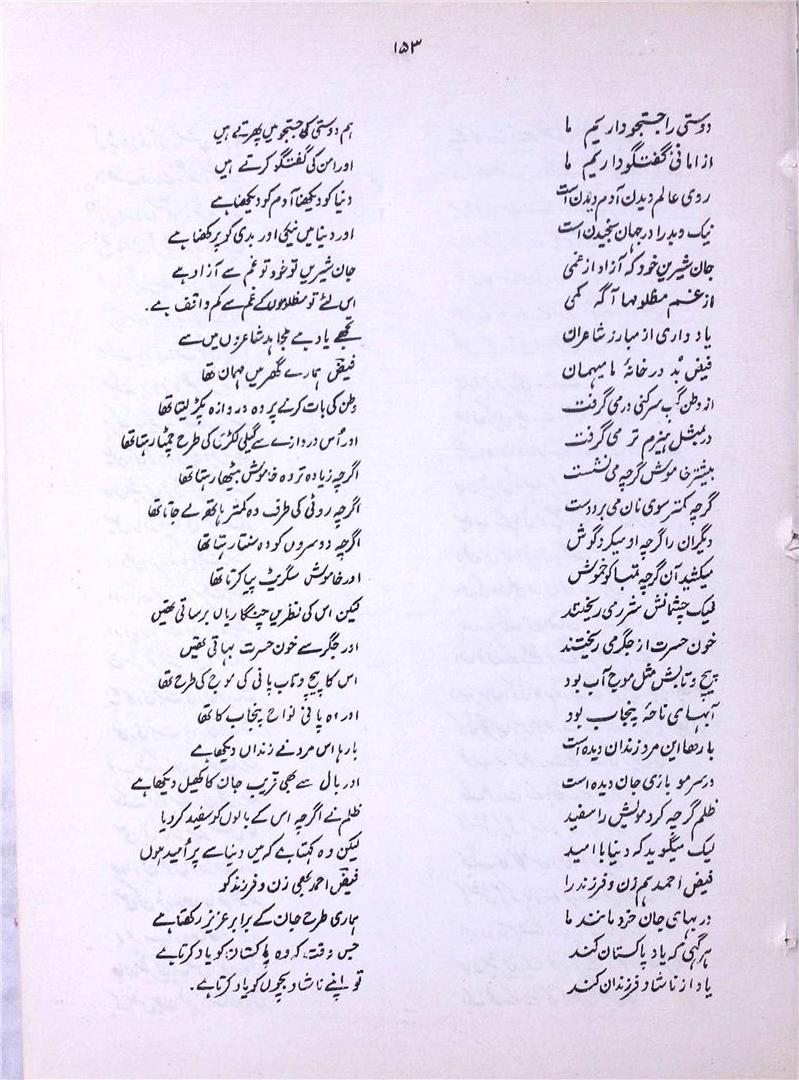 ۱۵۳
دوستی را جستجو داریم ما
از امانی گفتگو داریم ما
روی عالم دیدن آدم دیدن است
نیک و بد را در جهان سنجیدن است
جان شیرین خود که آزاد از غمی
از غم مظلومها آگه کمی
یاد داری از مبارز شاعران
فیض بُد در خانهٔ ما میهمان
از وطن گپ سر کنی در می گرفت
در بمثل هیزم تر می گرفت
بیشتر خاموش گرچه می نشست
گرچه کمتر سوی نان می برد دست
دیگران را گرچه او میکرد گوش
میکشید آن گرچه تمباکو خموش
لیک چشمانش شرر می ریختند
خون حسرت از جگر می ریختند
پیچ و تابش مثل موج آب بود
آبهای ناحهٔ پنجاب بود
بارها این مرد زندان دیده است
در سر مو بازی جان دیده است
ظلم گرچه کرد مویش را سفید
لیک میگوید که دنیا با امید
فیض احمد هم زن و فرزند را
در بهای جان خرد مانند ما
هر گهی که یاد پاکستان کند
یاد از ناشاد فرزندان کند
ہم دوستی کی جستجو میں پھرتے ہیں
اور امن کی گفتگو کرتے ہیں
دنیا کو دیکھنا آدم کو دیکھنا ہے
اور دنیا میں نیکی اور بدی کو پرکھنا ہے
جان شیریں تو خود تو غم سے آزاد ہے
اس لئے تو مظلوموں کے غم سے کم واقف ہے۔
تجھے یاد ہے مجاہد شاعروں میں سے
فیض ہمارے گھر میں مہمان تھا
وطن کی بات کرنے پر وہ دروازہ پکڑ لیتا تھا
اور اُس دروازے سے گیلی لکڑی کی طرح چمٹا رہتا تھا
اگرچہ زیادہ تر وہ خاموش بیٹھا رہتا تھا
اگرچہ روٹی کی طرف وہ کمتر ہاتھ لے جاتا تھا
اگرچہ دوسروں کو وہ سنتا رہتا تھا
اور خاموش سگریٹ پیا کرتا تھا
لیکن اس کی نظریں چنگاریاں برساتی تھیں
اور جگر سے خون حسرت بہاتی تھیں
اس کا پیچ و تاب پانی کی موج کی طرح تھا
اور وہ پانی نواح پنجاب کا تھا
بارہا اس مرد نے زنداں دیکھا ہے
اور بال سے بھی قریب جان کا کھیل دیکھا ہے
ظلم نے اگرچہ اس کے بالوں کو سفید کر دیا
لیکن وہ کہتا ہے کہ میں دنیا سے پُر اُمید ہوں
فیض احمد بھی زن و فرزند کو
ہماری طرح جان کے برابر عزیز رکھتا ہے
جس وقت کہ وہ پاکستان کو یاد کرتا ہے
تو اپنے ناشاد بچوں کو یاد کرتا ہے۔